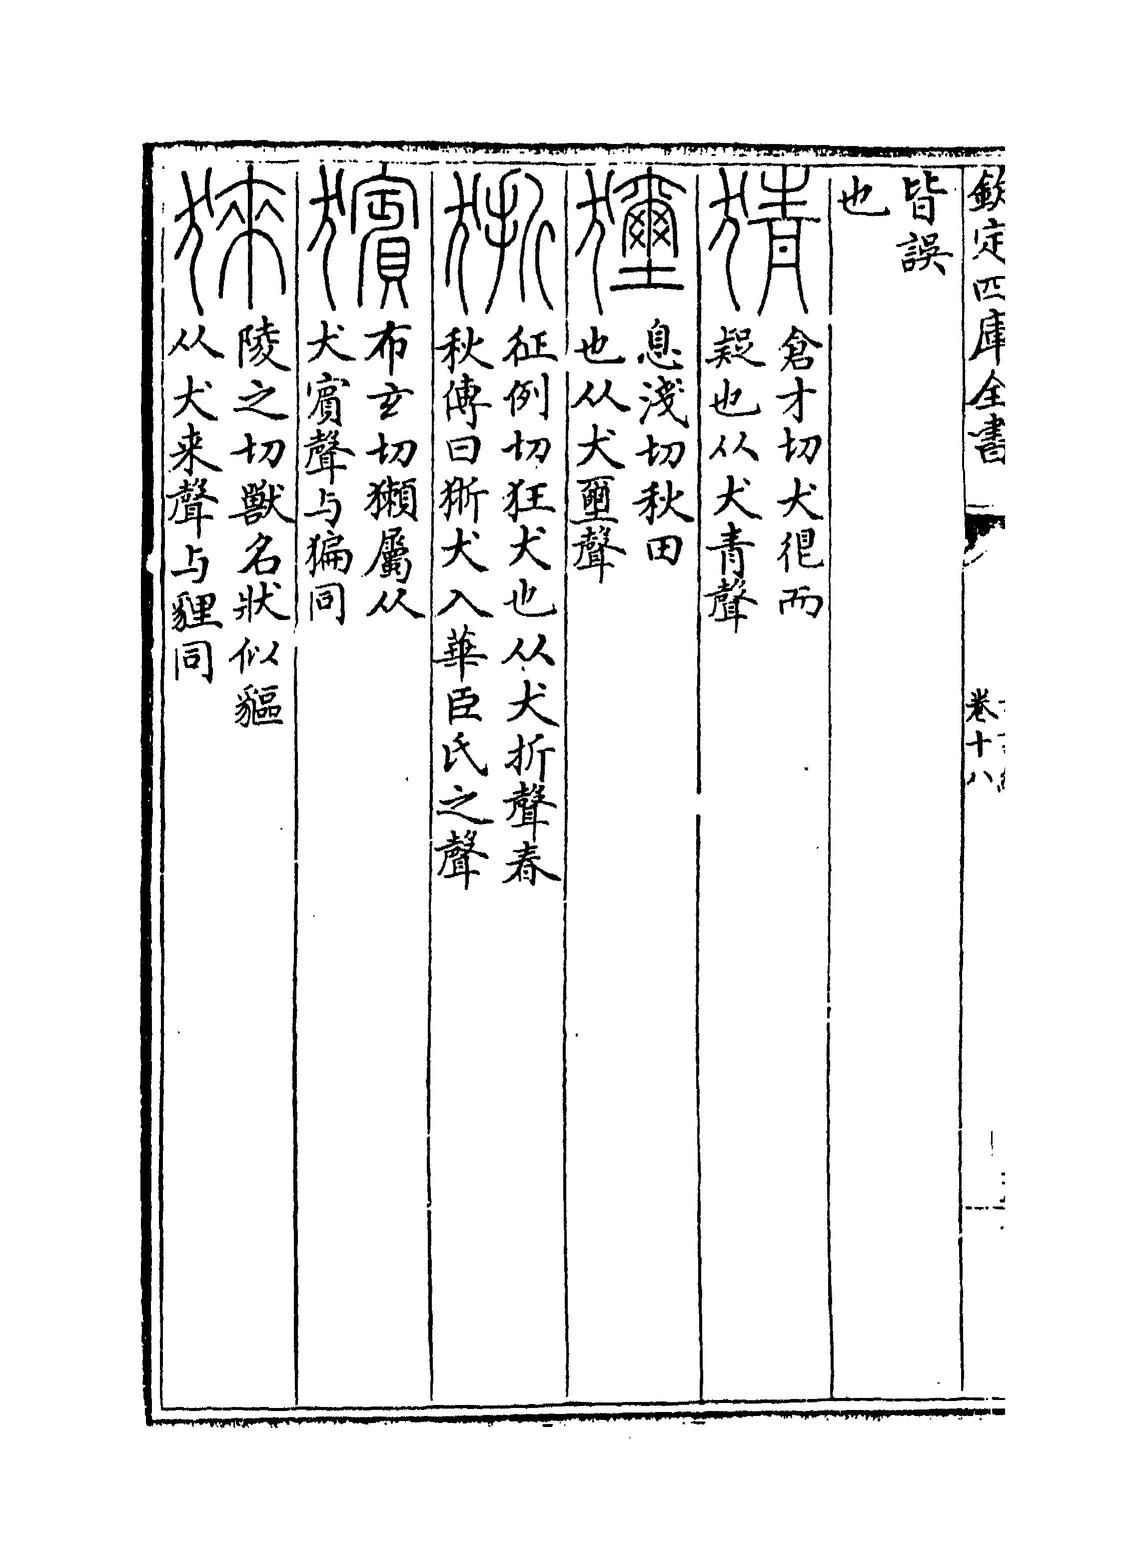 欽定四庫全書
卷十八
皆誤
也
猜
倉才切犬㒾而
疑也从犬青聲
獮
息淺切秋田
也从犬壐聲
狾
征例切狂犬也从犬折聲春
秋傳曰狾犬入華臣氏之聲
獱
布玄切獺屬从
犬賔聲与猵同
猍
陵之切獸名狀似貙
从犬来聲与貍同